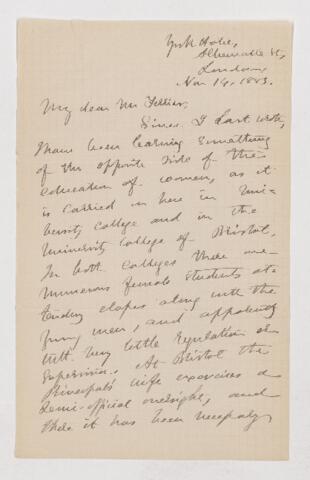 York Hotel,
Albemarle St,
London,
Nov 14, 1883.
My dear Mr
Since I last wrote,
have been learning something
of the opposite side of the
education of women, as it
is carried on here in Uni-
versity College and in the
University College of Bristol.
In both colleges there are
numerous female students at-
tending classes along with the
young men, and apparently
with very little regulation or
supervision. At Bristol the
Principal's wife exercises a
semi-official oversight, and
there it has been